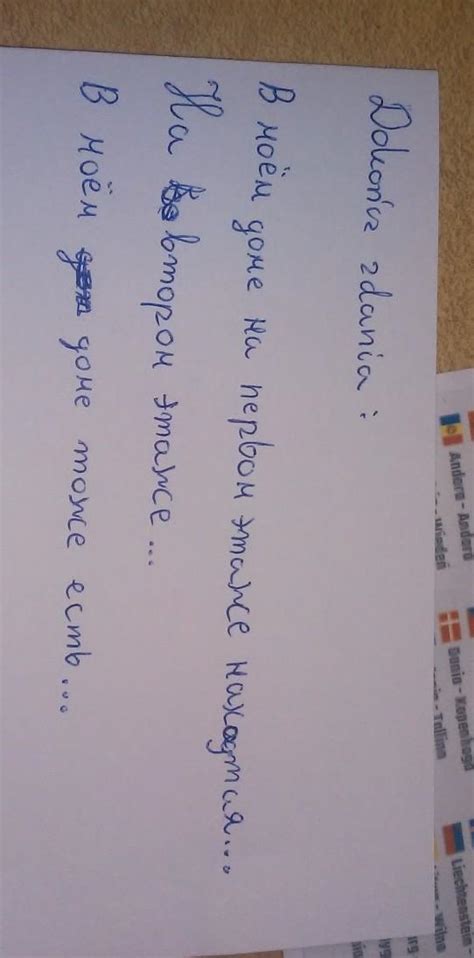 Dokończ zdania:
В моём доме на первом этаже находятся...
На втором этаже...
В моём доме тоже есть....
Andora - Andora
- Wiedeń
Dania - Kopenhaga
- Tallinn
Liechtenstein -
- Wilno